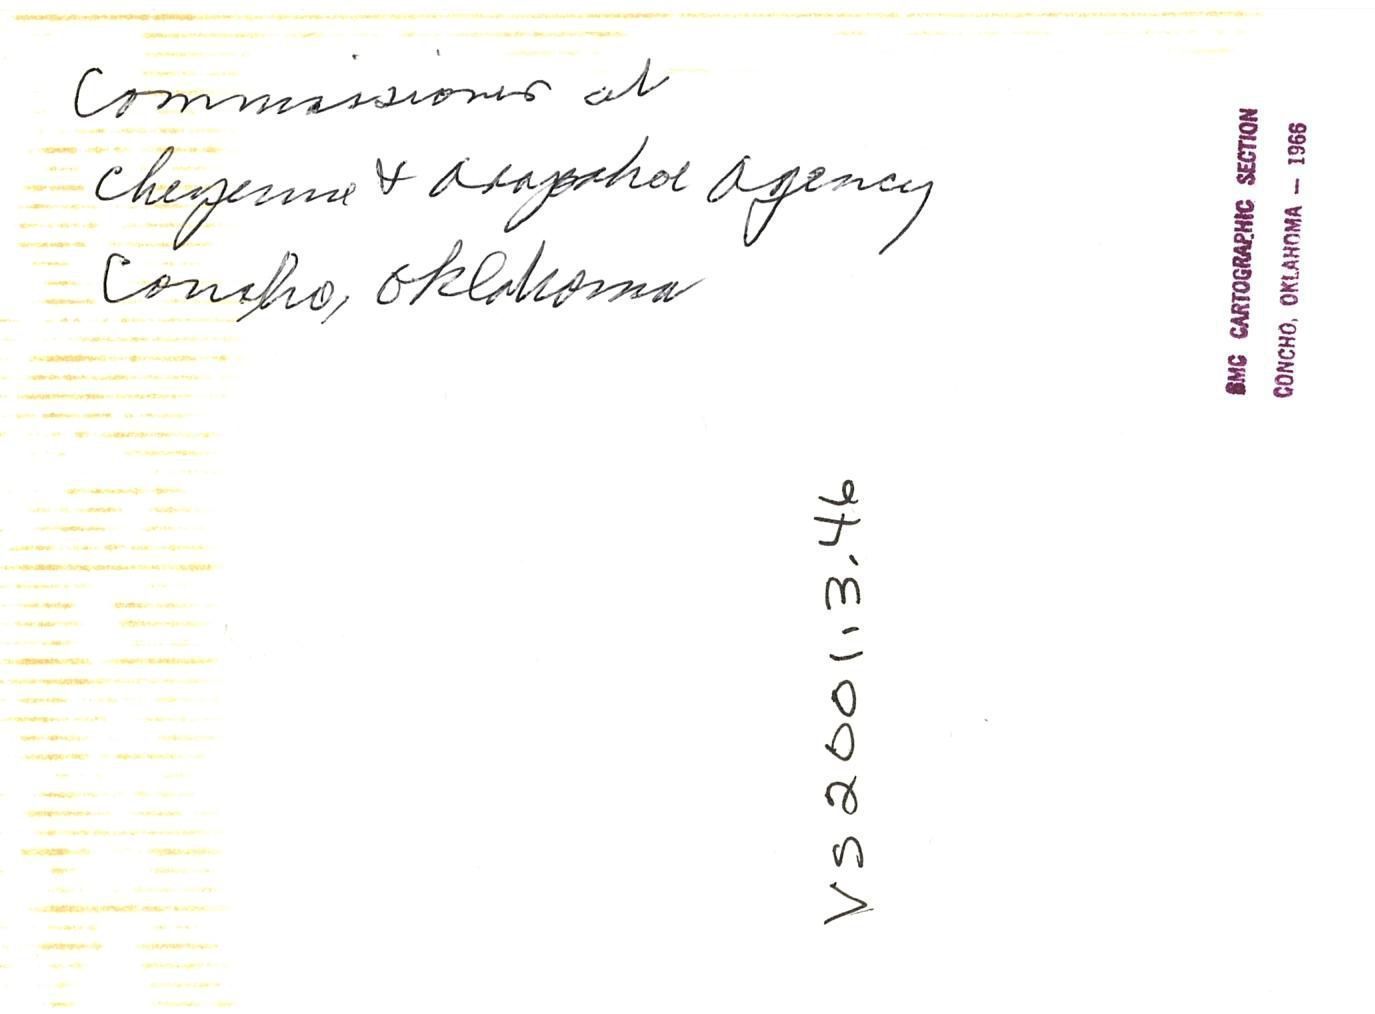 Commissioner at
Cheyenne & Arapahoe Agency
Concho, Oklahoma
BMC CARTOGRAPHIC SECTION
CONCHO, OKLAHOMA — 1966
VS2001.13.46